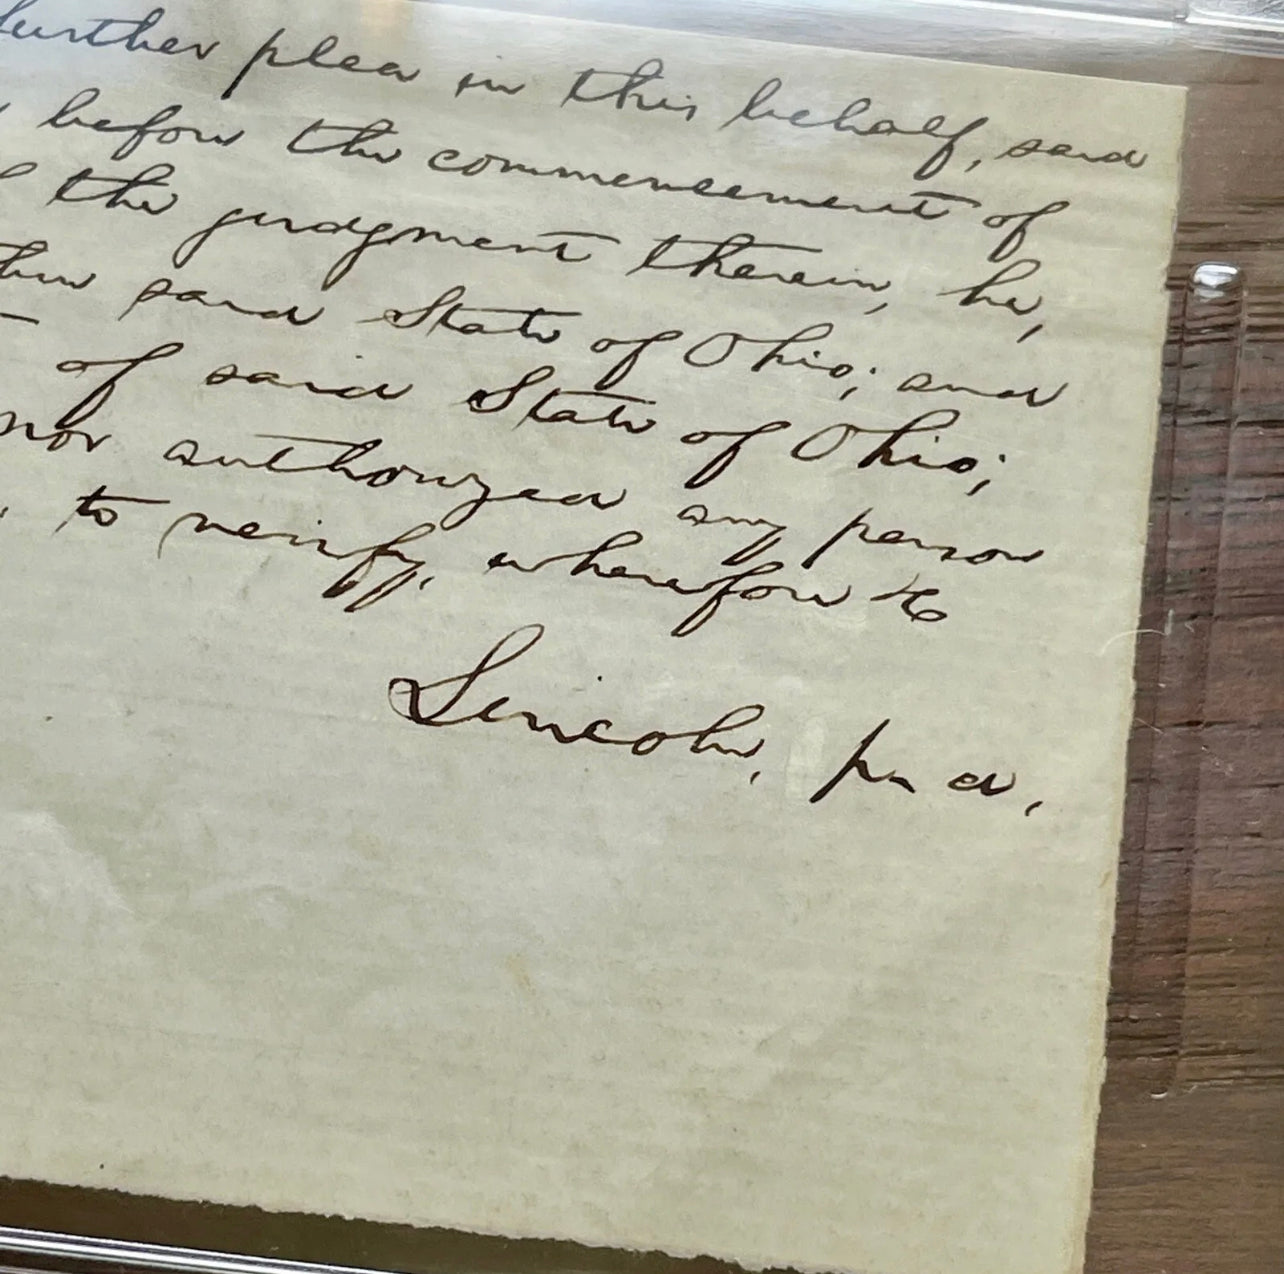 further plea in this behalf, said
before the commencement of
the judgment therein, he,
said State of Ohio; and
of said State of Ohio;
nor authorized any person
to verify, wherefore &c
Lincoln, p. d.